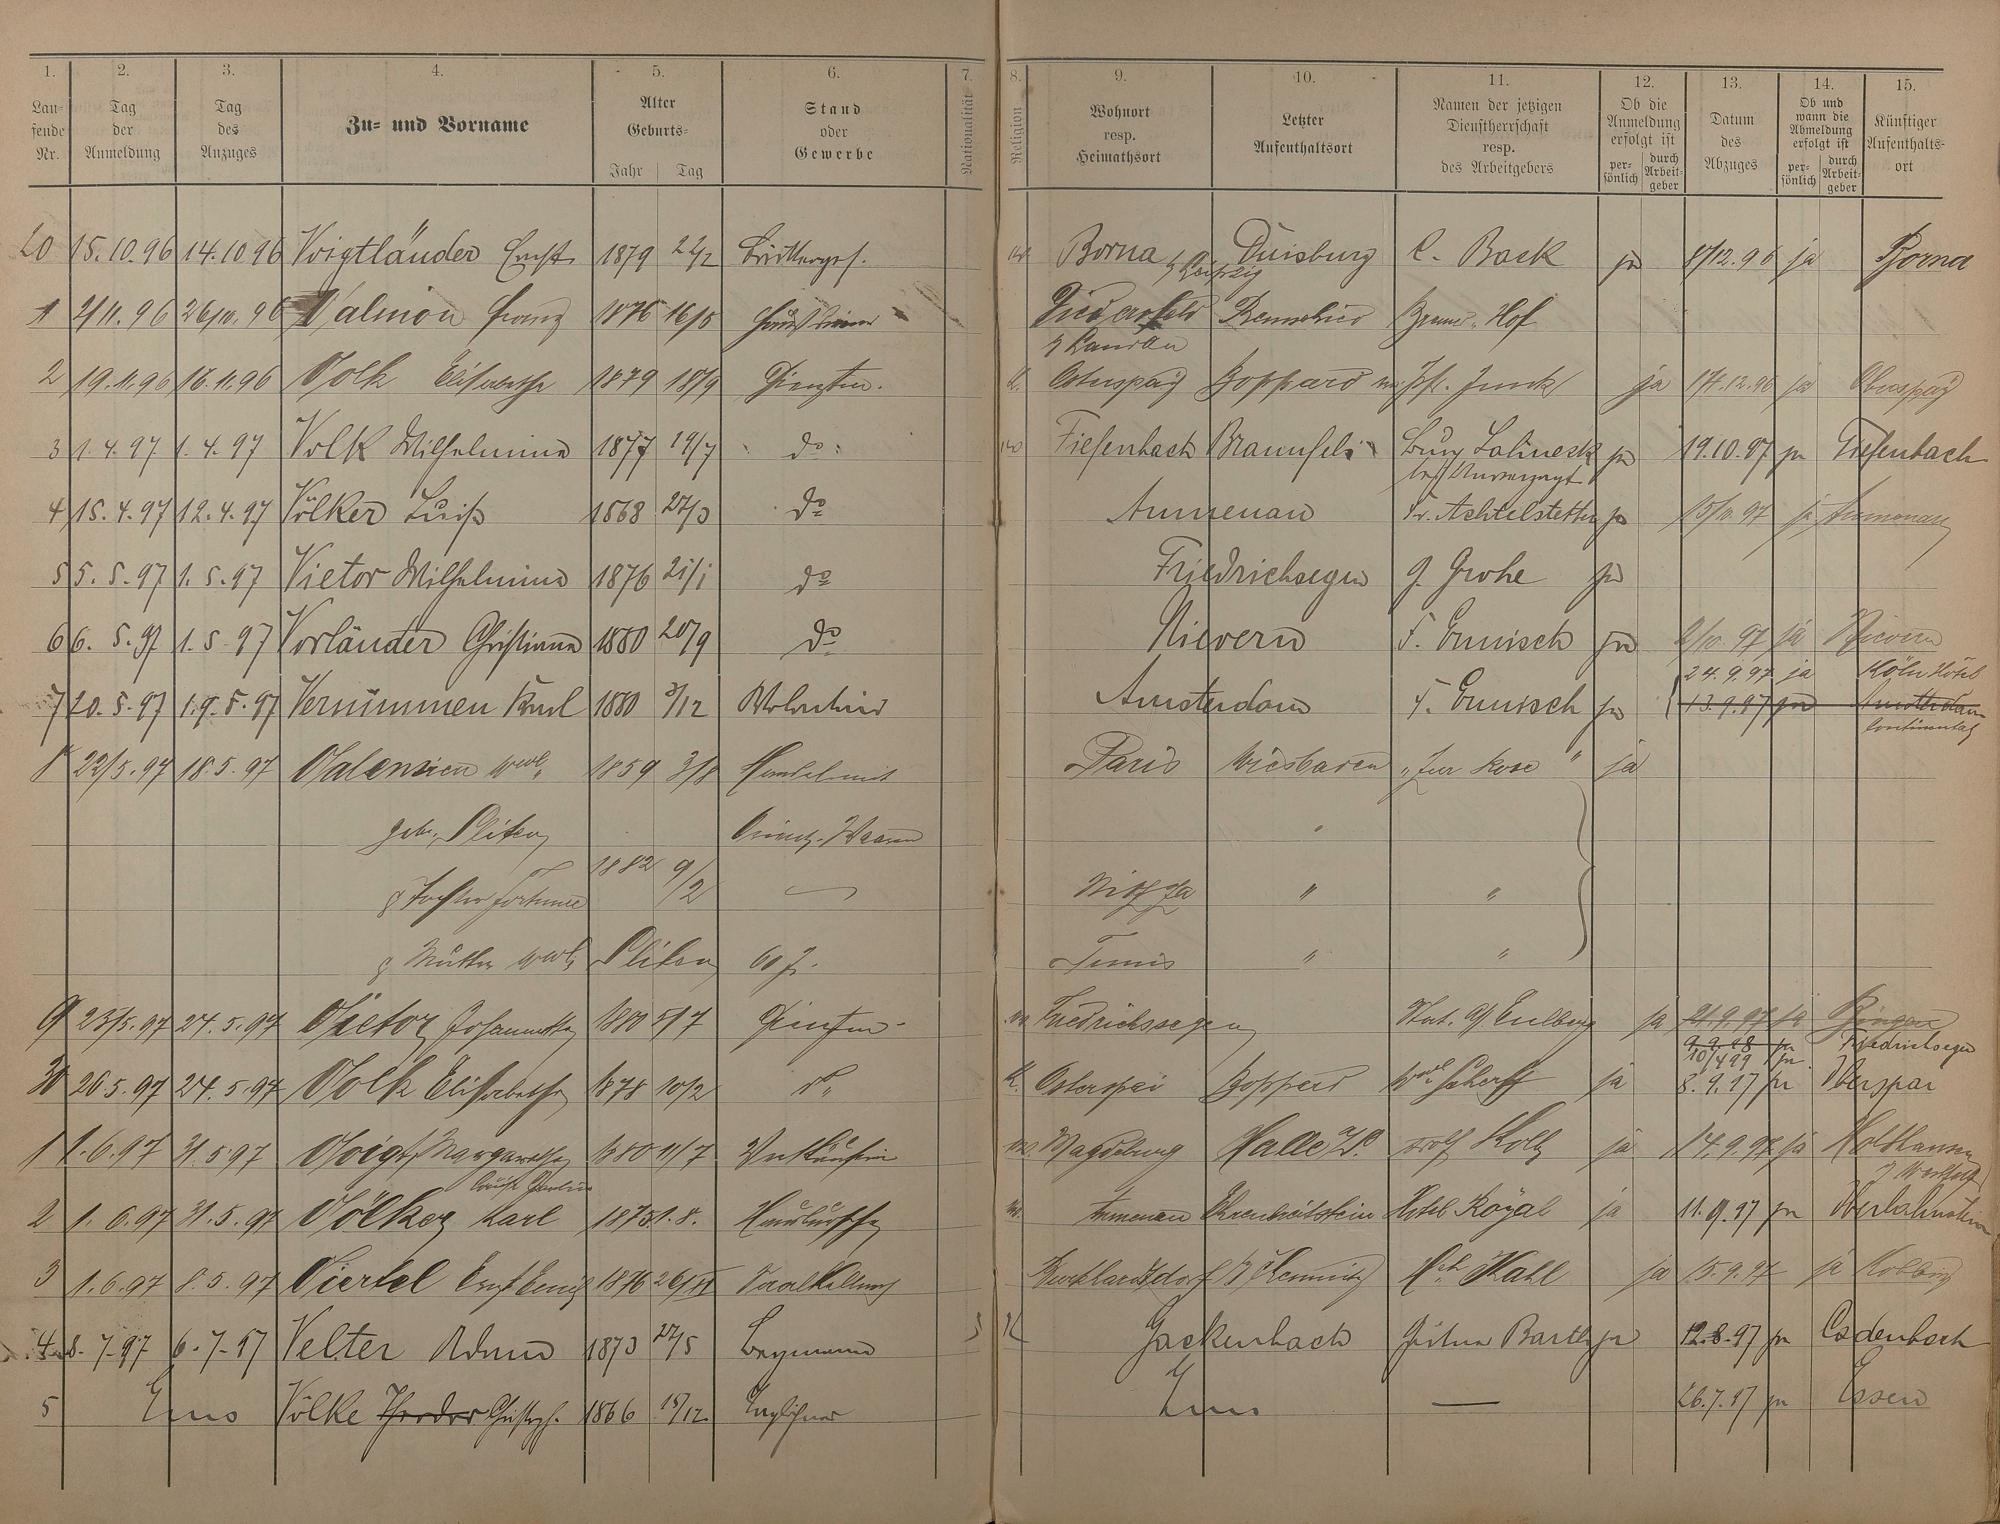 1. 2. 3. 4. 5. 6. 7. 8. 9. 10. 11. 12. 13. 14. 15.
Laufende Nr. Tag der Anmeldung Tag des Anzuges Zu- und Vorname Alter Geburts- Jahr Tag Stand oder Gewerbe Nationalität Religion Wohnort resp. Heimathsort Letzter Aufenthaltsort Namen der jetzigen Dienstherrschaft resp. des Arbeitgebers Ob die Anmeldung erfolgt ist persönlich durch Arbeitgeber Datum des Abzuges Ob und wann die Abmeldung erfolgt ist persönlich durch Arbeitgeber Künftiger Aufenthaltsort
20 15.10.96 14.10 96 Voigtländer Ernst 1879 22/2 Borna Duisburg C. Back ja 8/12.96 ja Borna
b/Leipzig
1 2/11.96 26/10.96 Valmon Franz 1876 16/8 Hof
2 19.11.96 16.11.96 Volk Elisabeth 1879 18/9 Dienstm. Osterspay Boppard Jos. Junk ja 17.12.96 ja
3 1.4.97 1.4.97 Volk Wilhelmine 1877 19/7 do Tiefenbach Braunfels ja 19.10.97 ja Tiefenbach
4 15.4.97 12.4.97 Völker Luise 1868 27/3 do Aumenau Fr. Achtelstetter ja 15/10 97 ja Aumenau
5 5.5.97 1.5.97 Vietor Wilhelmine 1876 21/1 do Friedrichsegen G. Grohe ja
6 6.5.97 1.5.97 Vorländer Christiane 1880 20/9 do Nievern F. Ermisch ja 2/10.97 ja Nievern
24.9.97 ja Köln Hotel
7 20.5.97 19.5.97 Vernümmen Karl 1880 3/12 Volontär Amsterdam F. Ermisch ja 13.9.97 ja Amsterdam
Continental
8 22/5.97 18.5.97 Valensien wwe. 1859 3/8 Handel mit Paris Wiesbaden "Zur Rose" ja
geb. Waaren
Tochter Fortunée 1882 9/2 — Nizza " "
Mutter wwe 60 J. Tunis " "
9 23/5.97 24.5.97 Vietor Johannette 1880 5/7 Dienstm. Friedrichssegen Eulberg ja 21.9.97 ja Bingen
9.9.98 ja Friedrichsegen
10/4 99 ja
30 26.5.97 24.5.97 Volk Elisabeth 1878 10/2 do Osterspai Boppard wwe Scherff ja 8.9.97 ja Oberspai
1 1.6.97 31.5.97 Voigt Margarethe 1880 11/7 Verkäuferin Magdeburg Halle a/S. Kolb ja 14.9.97 ja Holthausen
2 1.6.97 31.5.97 Völker Karl 1875 1.8. Hausbursche Aumenau Ehrenbreitstein Hotel Royal ja 11.9.97 ja Oberlahnstein
3 1.6.97 8.5.97 Viertel Ernst Emil 1876 26/VI Saalkellner Burkhardtsdorf b/Chemnitz Hch Kahl ja 15.9.97 ja
4 8.7.97 6.7.97 Velter 1873 27/5 Bergmann K Gackenbach Barth ja 12.8.97 ja Cadenbach
5 Ems Völke Theodor Christoph. 1866 18/12 Ems — 26.7.97 ja Essen